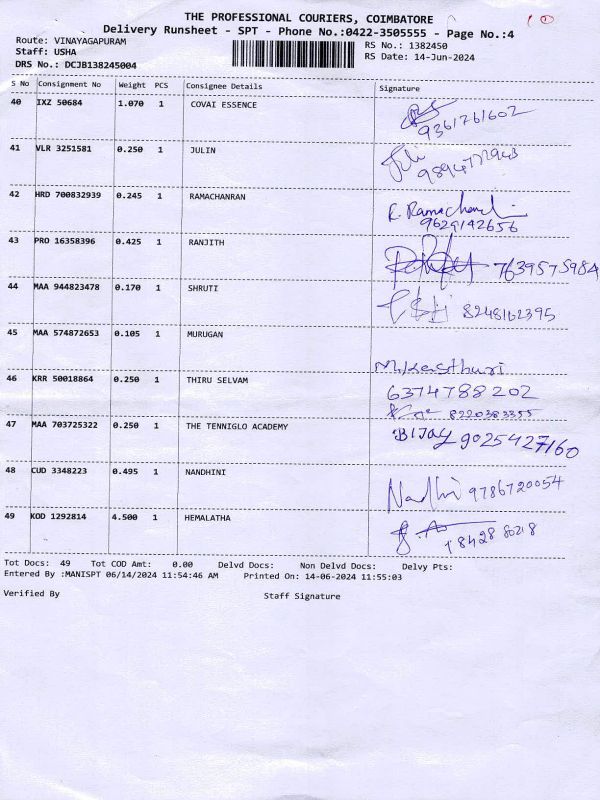 THE PROFESSIONAL COURIERS, COIMBATORE
Delivery Runsheet - SPT - Phone No.:0422-3505555 - Page No.:4
Route: VINAYAGAPURAM
RS No.: 1382450
Staff: USHA
RS Date: 14-Jun-2024
DRS No.: DCJB138245004
S No Consignment No Weight PCS Consignee Details Signature
40 IXZ 50684 1.070 1 COVAI ESSENCE
9361761602
41 VLR 3251581 0.250 1 JULIN
42 HRD 700832939 0.245 1 RAMACHANRAN
9629142656
43 PRO 16358396 0.425 1 RANJITH
7639575984
44 MAA 944823478 0.170 1 SHRUTI
8248162395
45 MAA 574872653 0.105 1 MURUGAN
M.Kasthuri
46 KRR 50018864 0.250 1 THIRU SELVAM 6374788202
8220383355
47 MAA 703725322 0.250 1 THE TENNIGLO ACADEMY BIJOY 9025427160
48 CUD 3348223 0.495 1 NANDHINI
Nadhi 9786720054
49 KOD 1292814 4.500 1 HEMALATHA
Tot Docs: 49 Tot COD Amt: 0.00 Delvd Docs: Non Delvd Docs: Delvy Pts:
Entered By :MANISPT 06/14/2024 11:54:46 AM Printed On: 14-06-2024 11:55:03
Verified By Staff Signature